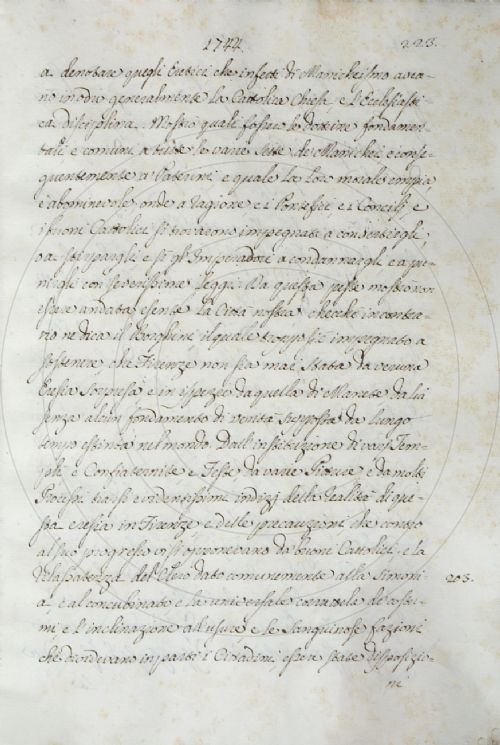 1744. 223.
a denotare quegli Eretici, che infetti di Manicheismo avea-
no in odio generalmente la Cattolica Chiesa, e l'Ecclesiasti-
ca disciplina. Mostrò quale fossero le dottrine fondamen-
tali e comuni a tutte le varie Sette de Manichei e conse-
guentemente a Paterini e quale la loro morale empia
e abominevole onde a ragione e i Pontefici e i Concilj e
i buoni Cattolici si trovarono impegnati a
e sì gl' Imperadori a condannargli e a pu-
nirgli con severissime Leggi. Da questa peste mostrò non
essere andata esente la Città nostra, checchè in contra-
rio ne dica il Borghini il quale troppo si è impegnato a
sostenere, che Firenze non sia mai stata da veruna
Eresia sorpresa e in ispezie da quella di Manete da lui
senza alcun fondamento di verità supposta da lungo
tempo estinta nel mondo. Dall'instituzione di varj Tem-
pli, e Confraternite e Feste da varie Pitture e da molti
Processi trasse evidentissimi indizj della realtà di que-
sta eresia in Firenze e delle precauzioni che contro
al suo progresso vi si opponevano da buoni Cattolici. e la
rilassatezza del Clero dato comunemente alla Simoni- 203.
a, e al concubinato e la universale corruttela de costu-
mi e l'inclinazione all' usure e le sanguinose fazioni
che dividevano in parti i Cittadini, esser state disposizio-
ni